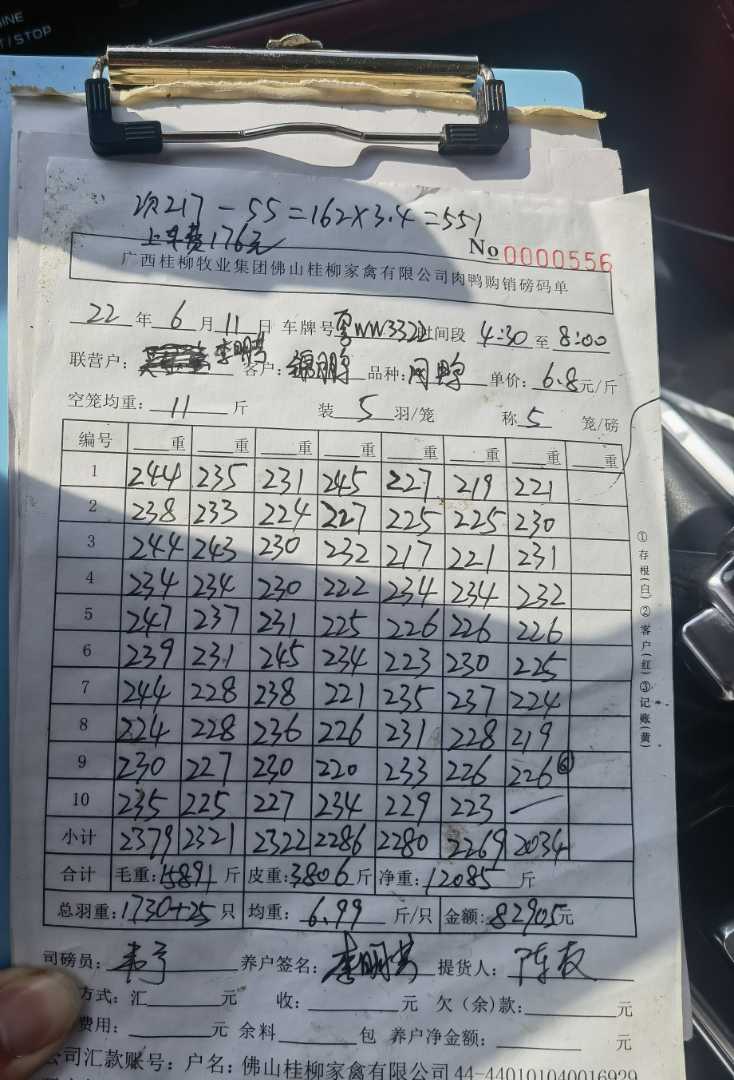 INE
T/STOP
次217-55=162×3.4=551
上车费176元
No 0000556
广西桂柳牧业集团佛山桂柳家禽有限公司肉鸭购销磅码单
22 年 6 月 11 日 车牌号 粤WW332 时间段 4:30 至 8:00
联营户: 李明芬 客户: 鹏 品种: 肉鸭 单价: 6.8元/斤
空笼均重: 11 斤 装 5 羽/笼 称 5 笼/磅
编号 重 重 重 重 重 重 重 重
1 244 235 231 245 227 219 221
2 238 233 224 227 225 225 230
3 244 243 230 232 217 221 231
4 234 234 230 222 234 234 232
5 247 237 231 225 226 226 226
6 239 231 245 234 223 230 225
7 244 228 238 221 235 237 224
8 224 228 236 226 231 228 219
9 230 227 230 220 233 226 226 ⑥
10 235 225 227 234 229 223 —
小计 2379 2321 2322 2286 2280 2269 2034
合计 毛重: 15891 斤 皮重: 3806 斤 净重: 12085 斤
总羽重: 1730+25 只 均重: 6.99 斤/只 金额: 82905元
司磅员: 养户签名: 李明芬 提货人: 陈友
方式: 汇 元 收: 元 欠(余)款: 元
费用: 元 余料 包 养户净金额: 元
公司汇款账号: 户名: 佛山桂柳家禽有限公司 44-440101040016929
①存根(白)②客户(红)③记账(黄)